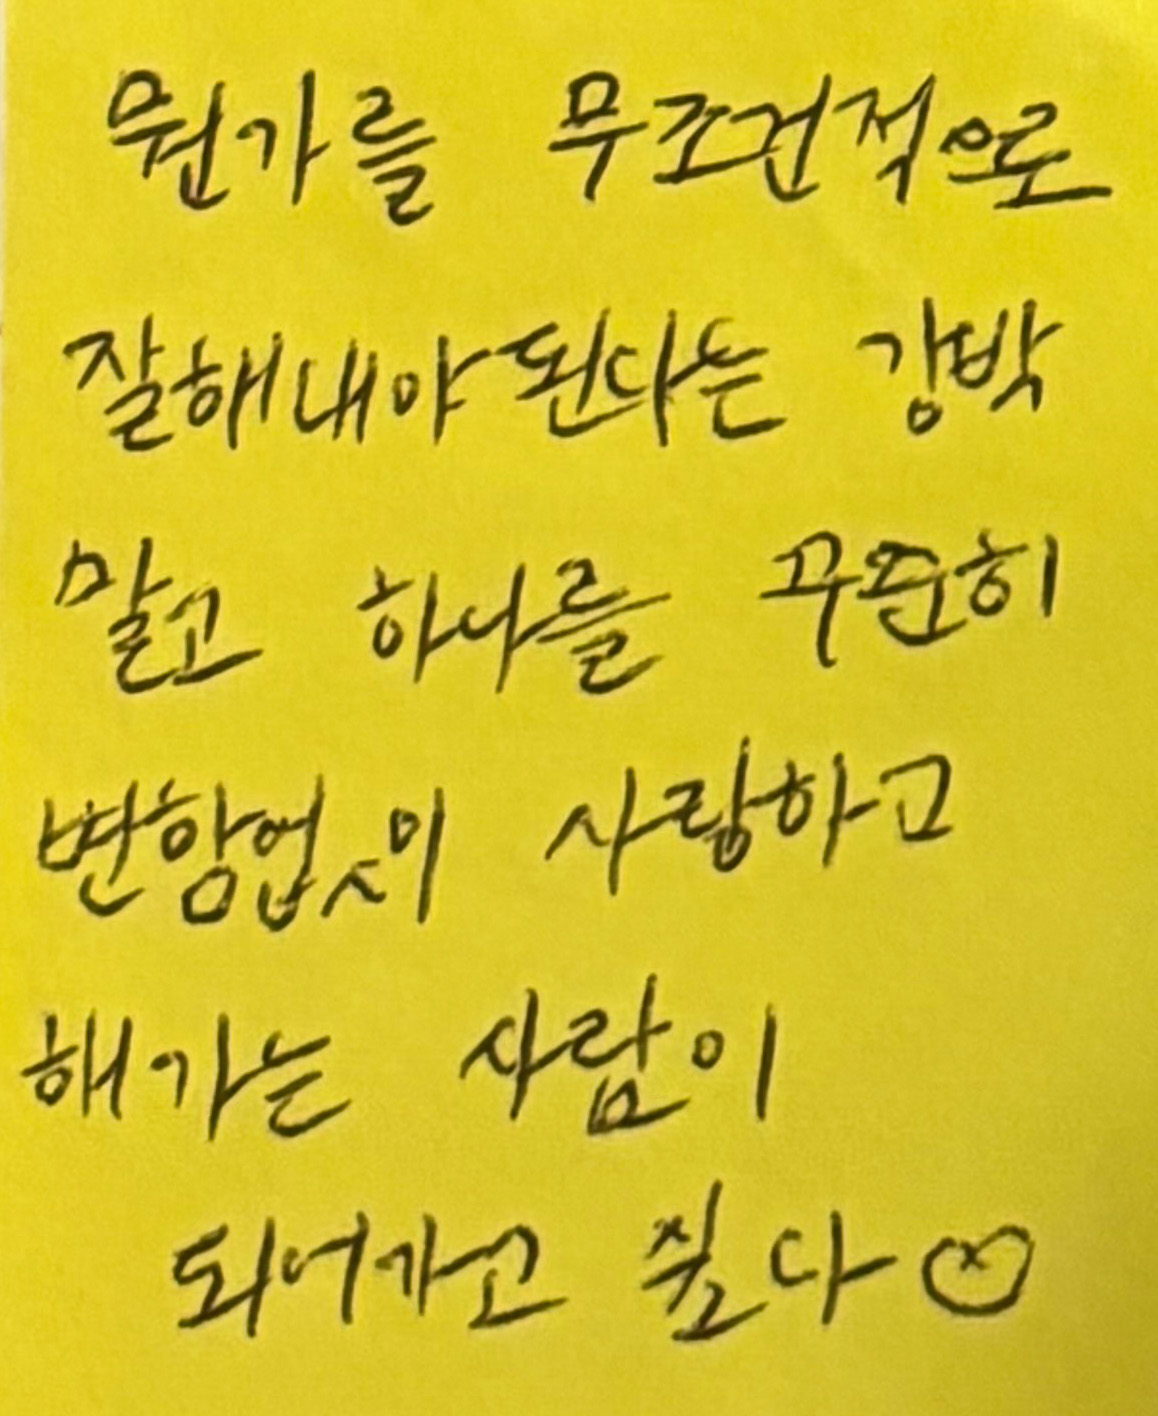 뭔가를 무조건적으로
잘해내야된다는 강박
말고 하나를 꾸준히
변함없이 사랑하고
해가는 사람이
되어가고 싶다